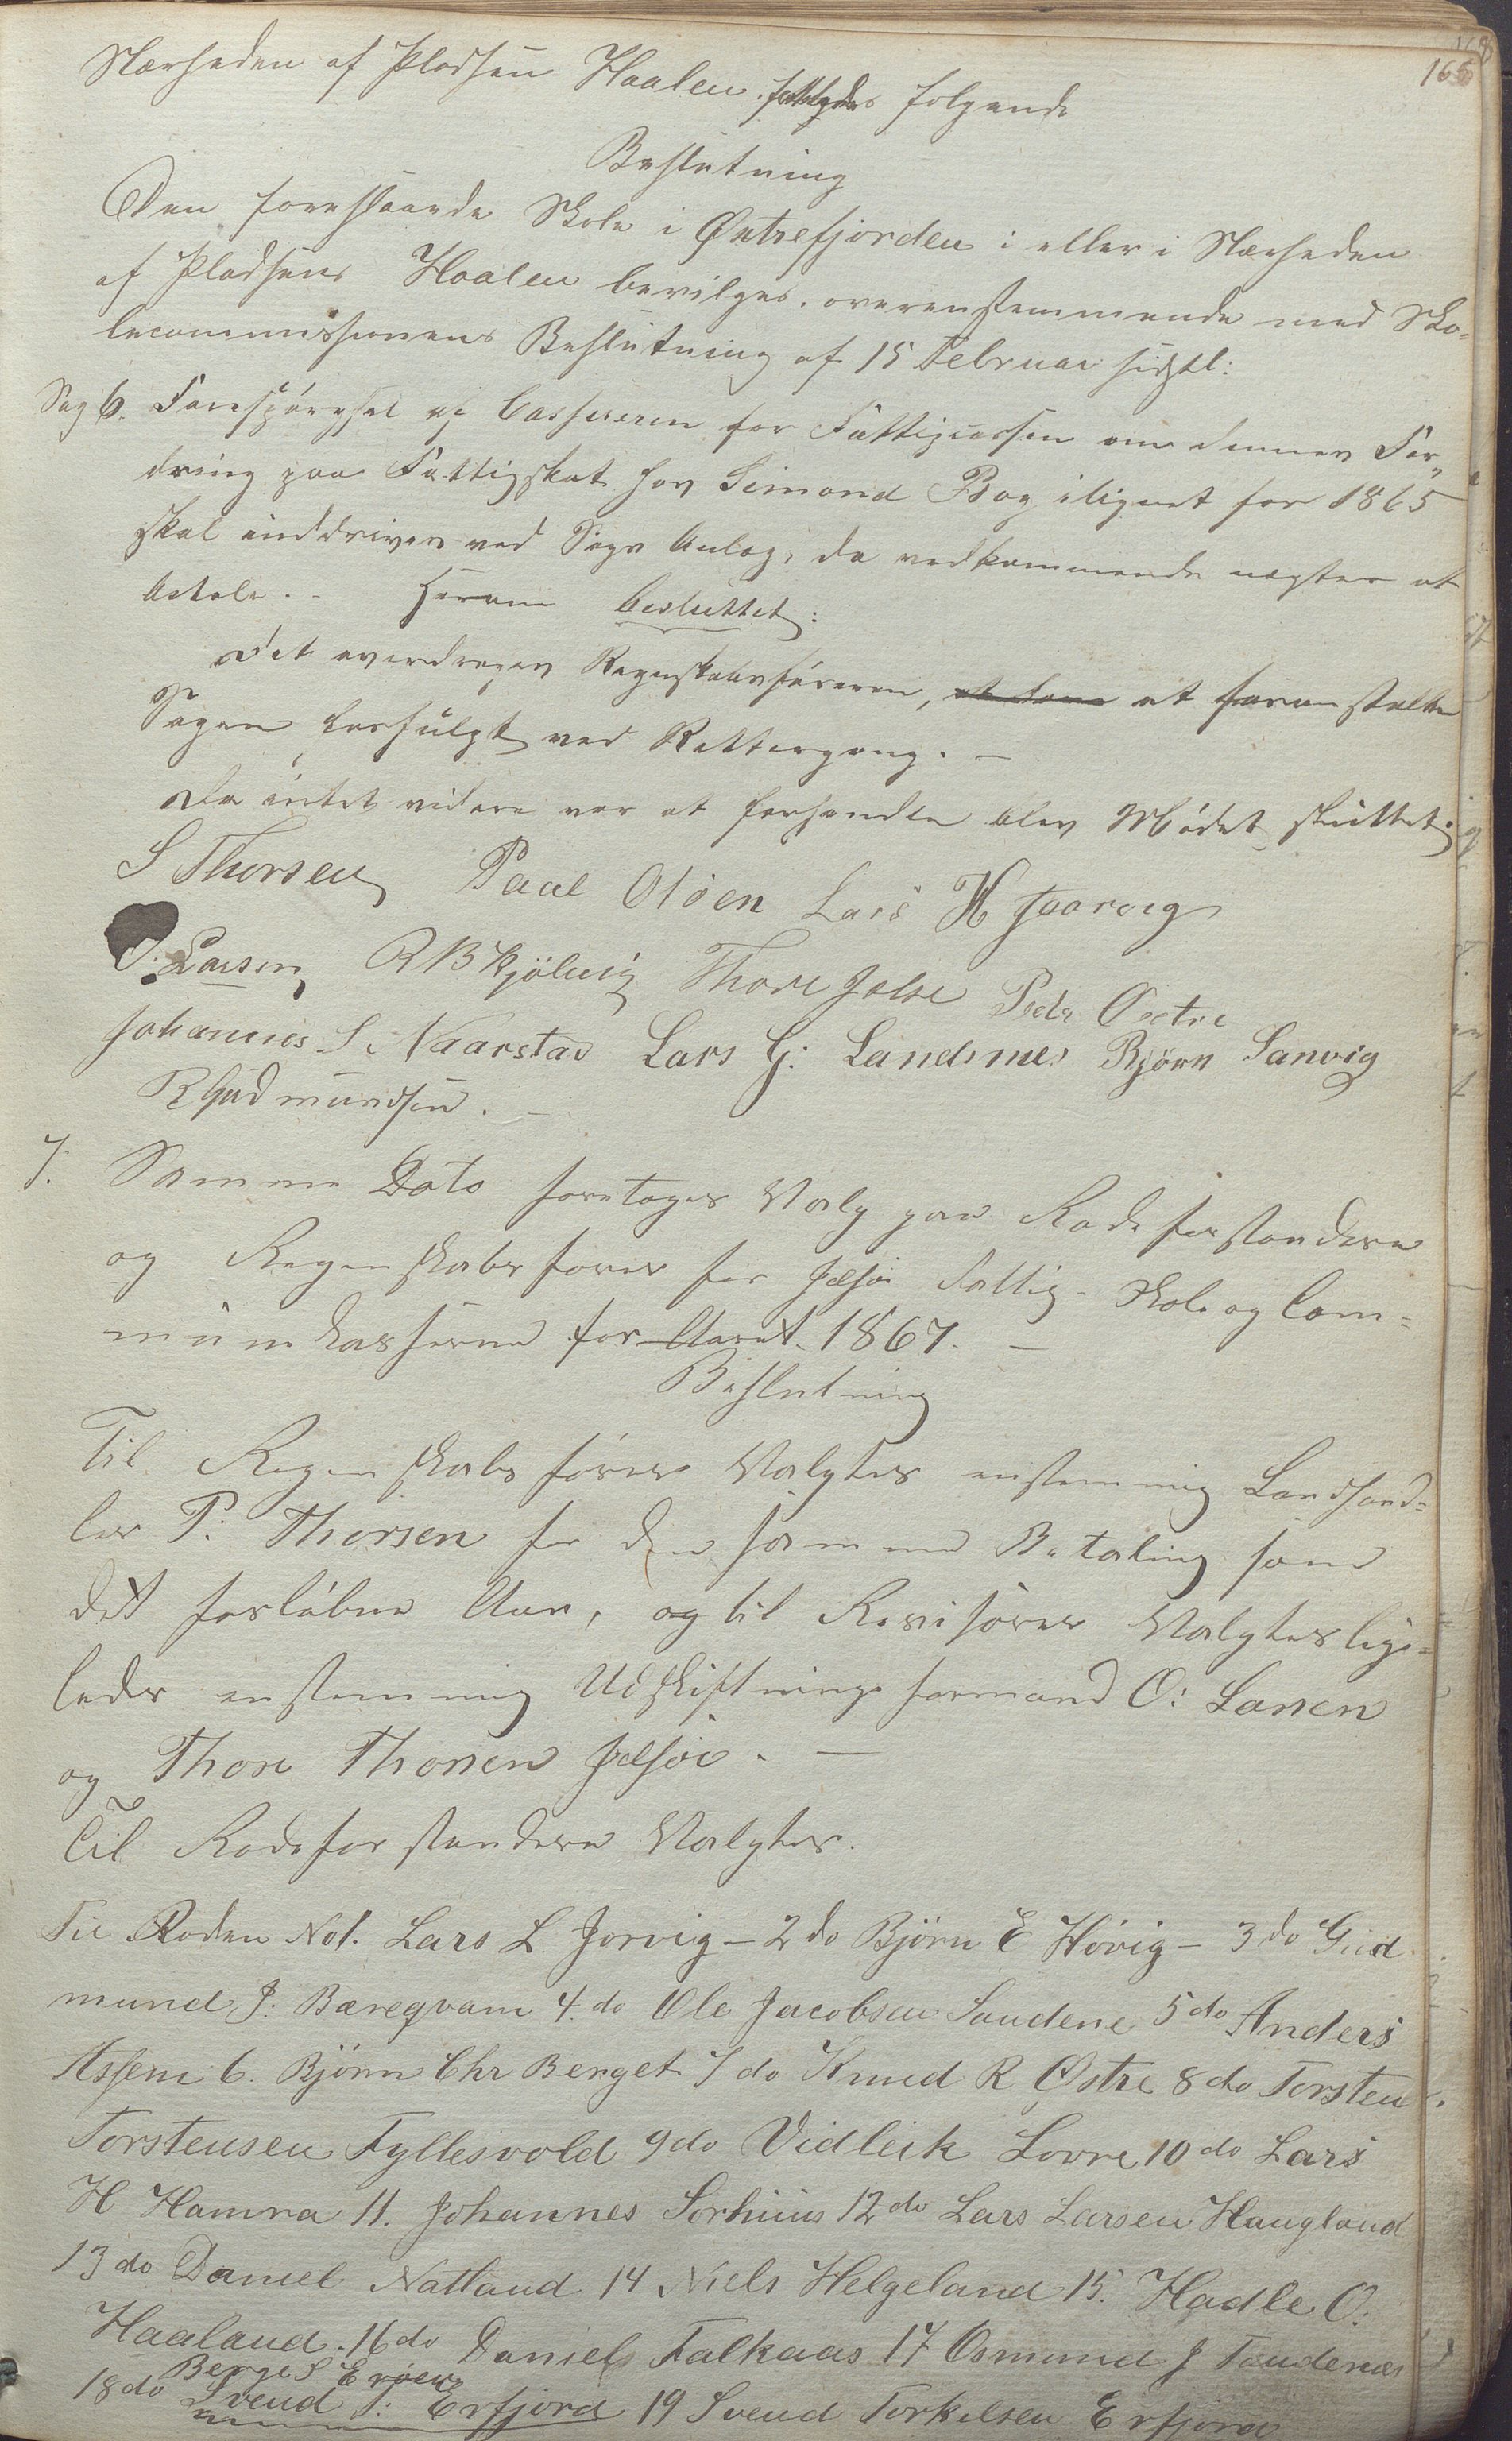 165
Nærheden af Pladsen Haalen. fattedes følgende
Beslutning
Den foreslaaede Skole i Østrefjorden i eller i Nærheden
af Pladsens Haalen bevilges. overenstemmende med Sko-
lecommissionens Beslutning af 15 Februar sidstl:
Sag 6. Forespørgsel af Casseren for Fattigcassen om dennes For-
dring paa Fattigskat hos Simond Bog ilignet for 1865
skal inddrives ved Søgs Anlæg, da vedkommende nægter at
betale. - Herom besluttet:
Det overdrages Regnskabsføreren, at foranstalte
Sagen forfulgt ved Rettergang. -
Da intet videre var at forhandle blev Mødet sluttet.
S Thorsen Paal Olsen Lars H Jaarvig
O: Larsen R B Kjölvig Thore Jelse Peder Østre
Johannes S. Naarstad Lars G: Landsnes Bjørn Sanvig
R Gudmundsen. -
7. Samme Dato foretages Valg paa Rodeforstandere
og Regenskabsfører for Jelsø Fattig- Skole og Com-
munekasserne for Aaret 1867. -
Beslutning
Til Regenskabsfører Valgtes enstemmig Landhand-
ler P. Thorsen for den samme Betaling som
det forløbne Aar, og til Revisorer Valgtes lige-
ledes enstemmig Udskiftningsformand O: Larsen
og Thore Thorsen Jelsøe. -
Til Rodeforstandere Valgtes.
Til Roden No 1. Lars L. Jorvig - 2 do Björn E Hövig - 3 do Gud
mund J: Bæreqvam 4. do Ole Jacobsen Sandene 5 do Anders
Assem 6. Bjørn Chr Berget 7 do Knud R Østre 8 do Torsten
Torstensen Fyllesvold 9 do Vidleik Lovre 10 do Lars
H Hamra 11. Johannes Sorhuus 12 do Lars Larsen Haugland
13 do Daniel Natland 14 Niels Helgeland 15. Hadle O.
Haaland. 16 do Daniel Falkaas 17 Osmund J Tandenes
Berge S Erøen
18 do Svend T: Erfjord 19 Svend Torkelsen Erfjord